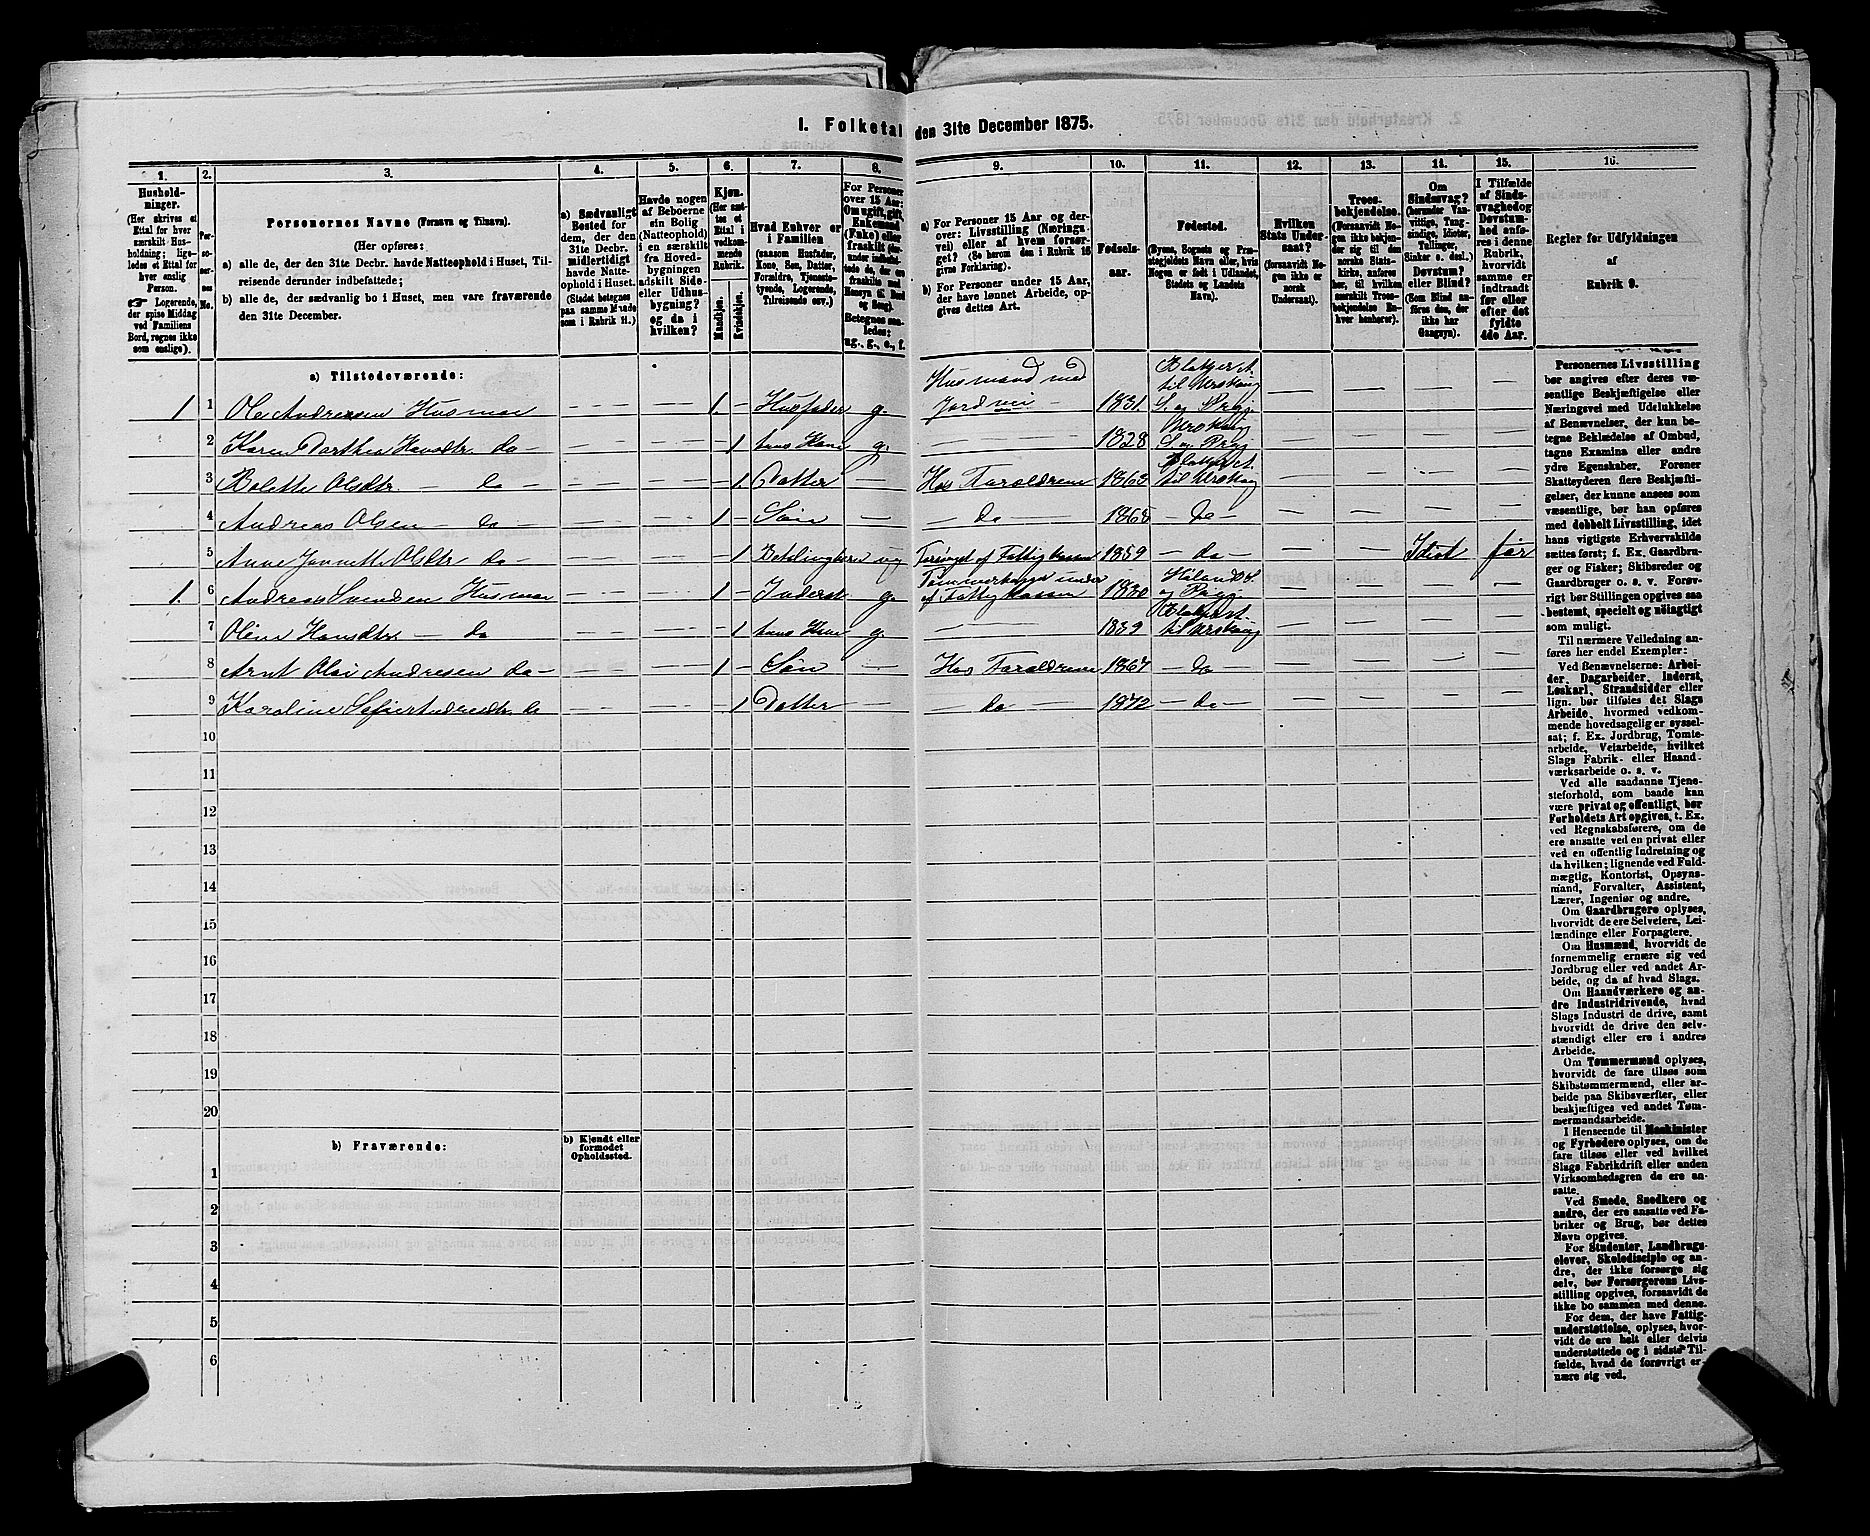 1. Folketal den 31te December 1875.
1. 2. 3. 4. 5. 6. 7. 8. 9. 10. 11. 12. 13. 14. 15. 16.
Hushold-
ninger.
(Her skrives et
Ettal for hver
særskilt Hus-
holdning; lige-
ledes et Ettal for
hver enslig
Person.
☞ Logerende,
der spise Middag
ved Familiens
Bord, regnes ikke
som enslige).
Per-
soner-
nes
No.
Personernes Navne (Fornavn og Tilnavn).
(Her opføres:
a) alle de, der den 31te Decbr. havde Natteophold i Huset, Til-
reisende derunder indbefattede;
b) alle de, der sædvanlig bo i Huset, men vare fraværende
den 31te December.
a) Sædvanligt
Bosted for
dem, der den
31te Decbr.
midlertidigt
havde Natte-
ophold i Huset.
(Stedet betegnes
paa samme Maade
som i Rubrik 11.)
Havde nogen
af Beboerne
sin Bolig
(Natteophold)
i en særskilt
fra Hoved-
bygningen
adskilt Side-
eller Udhus-
bygning?
og da i
hvilken?
Kjøn.
(Her sæt-
tes et
Ettal i
vedkom-
mende
Rubrik.
Mandkjøn.
Kvindekjøn.
Hvad Enhver er
i Familien
(saasom Husfader,
Kone, Søn, Datter,
Forældre, Tjeneste-
tyende, Logerende,
Tilreisende osv.)
For Personer
over 15 Aar:
Om ugift, gift,
Enkemand
(Enke) eller
fraskilt
Betegnes saa-
ledes:
ug., g., e., f.
a) For Personer 15 Aar og der-
over: Livsstilling (Nærings-
vei) eller af hvem forsør-
get? (Se herom den i Rubrik 16
givne Forklaring).
b) For Personer under 15 Aar,
der have lønnet Arbeide, op-
gives dettes Art.
Fødsels-
aar.
Fødested.
(Byens, Sognets og Præ-
stegjeldets Navn eller, hvis
Nogen er født i Udlandet,
Stedets og Landets
Navn).
Hvilken
Stats Under-
saat?
(forsaavidt No-
gen ikke er
norsk
Undersaat).
Troes-
bekjendelse.
(Forsaavidt No-
gen ikke bekjen-
der sig til den
norske Stats-
kirke, anføres
her, til hvilken
særskilt Troes-
bekjendelse En-
hver henhører).
Om
Sindssvag?
(herunder Van-
vittige, Tung-
sindige, Idioter,
Tullinger,
Sinker o. desl.)
Døvstum?
eller Blind?
(Som Blind an-
føres den, der
ikke har
Gangsyn).
I Tilfælde
af Sinds-
svaghed og
Døvstum-
hed anføres
i denne
Rubrik,
hvorvidt
samme er
indtraadt
før eller
efter det
fyldte
4de Aar.
Regler for Udfyldningen
af
Rubrik 9.
a) Tilstedeværende:
1. 1 Ole Andreasen Husmoe — — 1. Husfader g. Husmand med Jordvei — 1831. Blakjer A. til Urskoug S. og Præg.
2 Karen Dorthea Hansdtr. do — — — 1 hans Kone g. — 1828 Urskoug S. og Præg.
3 Bolette Olsdtr. — do — — — 1. Datter — Hos Forældrene 1863 Blakjer A. til Urskoug
4 Andreas Olsen — do — — — 1 — Søn — — do — 1868 — do —
5 Anne Jannette Olsdtr do — — — 1 ug Forsørget af Fattigkassen 1859 — do — — — Idiot før
1. 6 Andreas Svendsen Husmoe — — 1 — Inderst g. Tømmerhugger under. af Fattigkassen 1830 Høland S. og Præg.
7 Oline Hansdtr — do — — — 1 hans Kone g. — 1839 Blakjer A. til Urskoug
8 Arnt Olai Andresen do — — — 1 — Søn — Hos Forældrene 1867 — do
9 Karoline Sofie Andreadtr. do — — — 1 Datter — — do — 1872 — do —
10
11
12
13
14
15
16
17
18
19
20
b) Fraværende:
b) Kjendt eller
formodet
Opholdssted.
1
2
3
4
5
6
Personernes Livsstilling
bør angives efter deres væ-
sentlige Beskjæftigelse eller
Næringsvei med Udelukkelse
af Benævnelser, der kun be-
tegne Beklædelse af Ombud,
tagne Examina eller andre
ydre Egenskaber. Forener
Skatteyderen flere Beskjæfti-
gelser, der kunne ansees som
væsentlige, bør han opføres
med dobbelt Livsstilling, idet
hans vigtigste Erhvervskilde
sættes først; f. Ex. Gaardbru-
ger og Fisker; Skibsreder og
Gaardbruger o. s. v. Forøv-
rigt bør Stillingen opgives saa
bestemt, specielt og nøiagtigt
som muligt.
Til nærmere Veiledning an-
føres her endel Exempler:
Ved Benævnelserne: Arbei-
der, Dagarbeider, Inderst,
Løskarl, Strandsidder eller
lign. bør tilføies det Slags
Arbeide, hvormed vedkom-
mende hovedsagelig er syssel-
sat; f. Ex. Jordbrug, Tomte-
arbeide, Veiarbeide, hvilket
Slags Fabrik- eller Haand-
værksarbeide o. s. v.
Ved alle saadanne Tjene-
steforhold, som baade kan
være privat og offentligt, bør
Forholdets Art opgives, t. Ex.
ved Regnskabsførere, om de
ere ansatte ved en privat eller
ved en offentlig Indretning og
da hvilken; lignende ved Fuld-
mægtig, Kontorist, Opsyns-
mand, Forvalter, Assistent,
Lærer, Ingeniør og andre.
Om Gaardbrugere oplyses,
hvorvidt de ere Selveiere, Lei-
lændinge eller Forpagtere.
Om Husmænd, hvorvidt de
fornemmelig ernære sig ved
Jordbrug eller ved andet Ar-
beide, og da af hvad Slags.
Om Haandværkere og an-
dre Industridrivende, hvad
Slags Industri de drive, samt
hvorvidt de drive den selv-
stændigt eller ere i andres
Arbeide.
Om Tømmermænd oplyses,
hvorvidt de fare tilsøs som
Skibstømmermænd, eller ar-
beide paa Skibsværfter, eller
beskjæftiges ved andet Tøm-
mermandsarbeide.
I Henseende til Maskinister
og Fyrbødere oplyses, om de
fare tilsøs eller ved hvilket
Slags Fabrikdrift eller anden
Virksomhedsgren de ere an-
satte.
Ved Smede, Snedkere og
andre, der ere ansatte ved Fa-
briker og Brug, bør dettes
Navn opgives.
For Studenter, Landbrugs-
elever, Skoledisciple og an-
dre, der ikke forsørge sig
selv, bør Forsørgerens Livs-
stilling opgives, forsaavidt de
ikke bo sammen med denne.
For dem, der have Fattig-
understøttelse, oplyses, hvor-
vidt de ere helt eller delvis
understøttede og i sidste Til-
fælde, hvad de forøvrigt er-
nære sig ved.